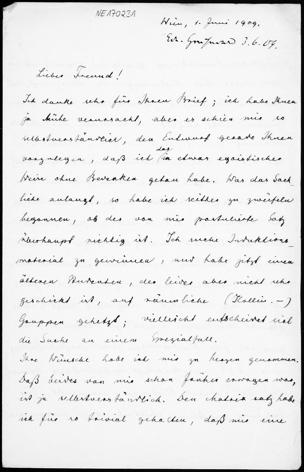 NEA7023A
Wien, 1. Juni 1909.
3.6.09.
Liebes Freund!
Ich danke sehr für Ihren Brief; ich habe Ihnen
ja Mühe verursacht, aber es schien mir so
selbstverständlich, den Entwurf gerade Ihnen
vorzulegen, daß ich das in etwas egoistischer
Weise ohne Bedenken getan habe. Was das Sach-
liche anlangt, so habe ich seither zu zweifeln
begonnen, ob der von mir postulierte Satz
überhaupt richtig ist. Ich suche Induktions-
material zu gewinnen, und habe jetzt einen
älteren Studenten, der leider aber nicht sehr
geschickt ist, auf räumliche (Kollin.-)
Gruppen gehetzt; vielleicht entscheidet sich
die Sache an einem Spezialfall.
Ihre Wünsche habe ich mir zu Herzen genommen.
Daß beides von mir schon früher erwogen war,
ist ja selbstverständlich. Den satz habe
ich für so trivial gehalten, daß mir eine